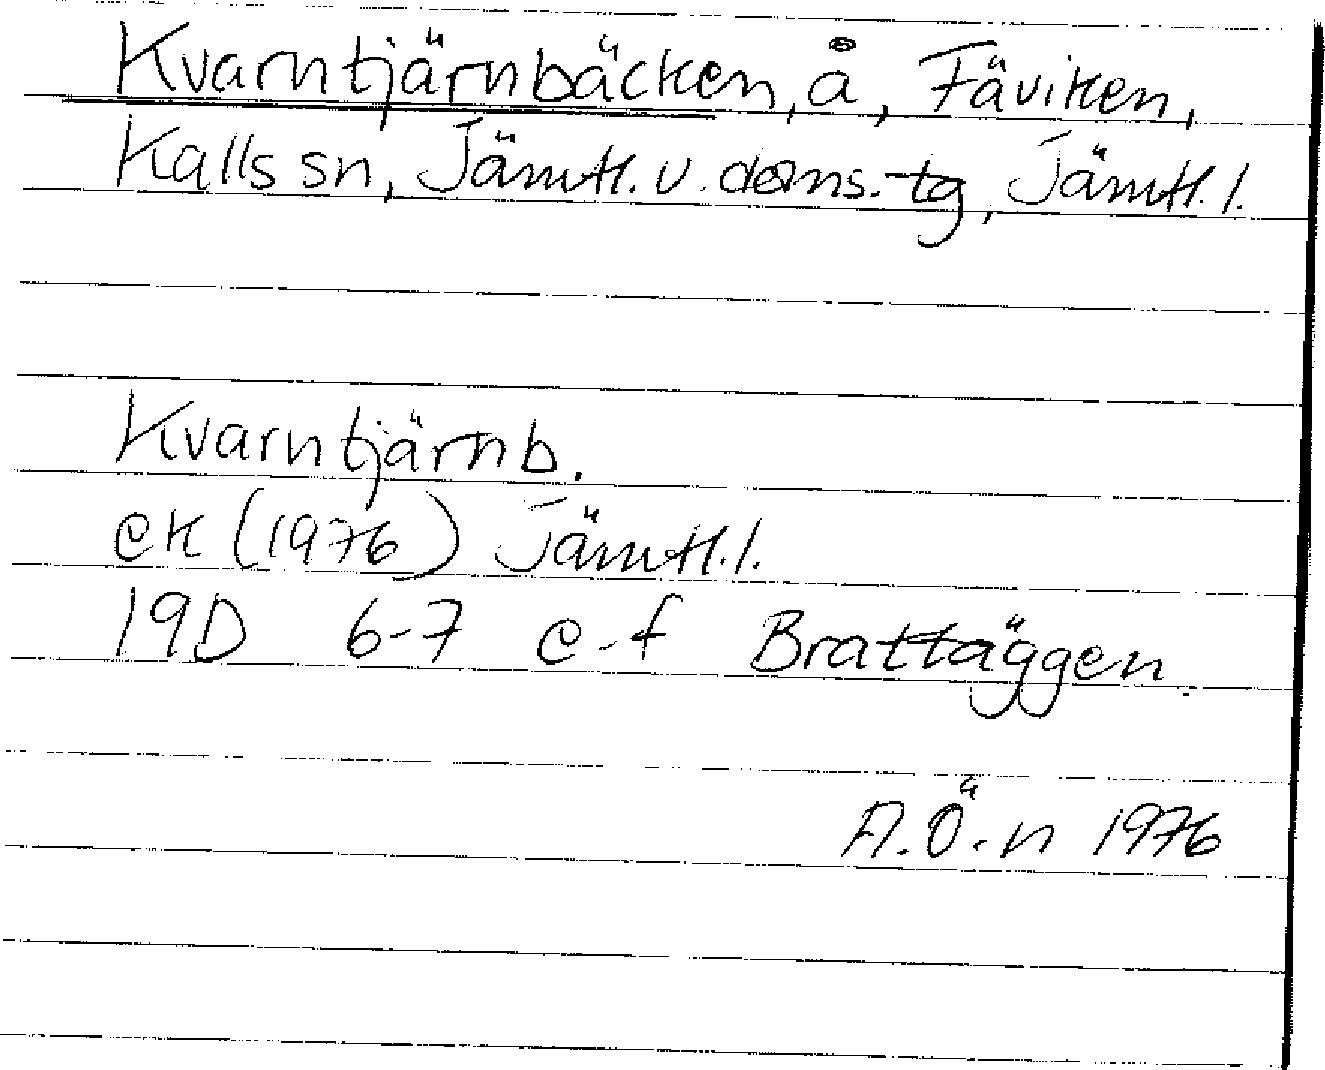 Kvarntjärnbäcken, å, Fäviken,
Kalls sn, Jämtl. v. doms.-tg, Jämtl. l.
Kvarntjärnb.
ek (1976) Jämtl. l.
19D 6-7 e-f Brattäggen
A.Ö-n 1976